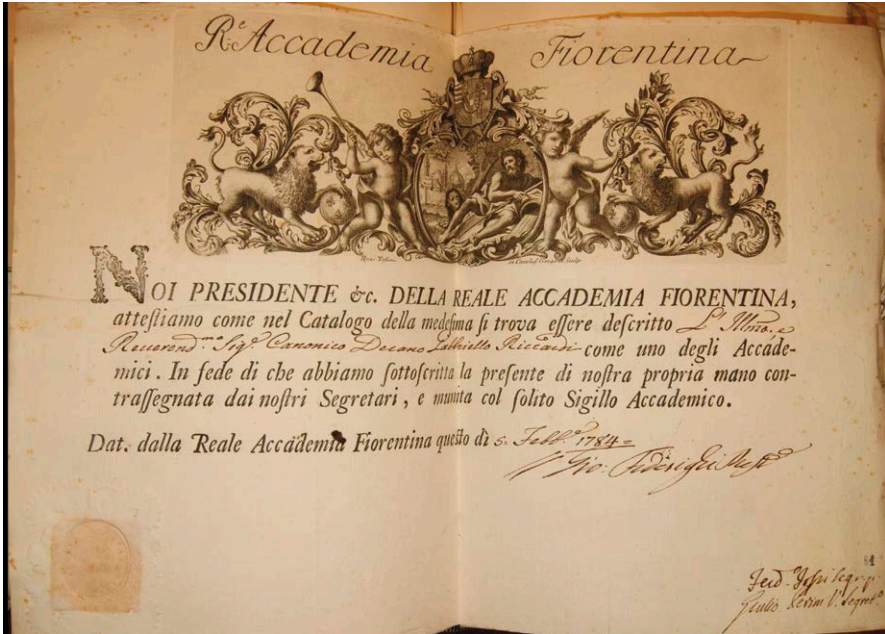 R.e Accademia Fiorentina
NOI PRESIDENTE &c. DELLA REALE ACCADEMIA FIORENTINA,
atteſtiamo come nel Catalogo della medeſima ſi trova eſſere deſcritto L'Illmo. e
Reverend.mo Sig.r Canonico Decano Gabbriello Riccardi come uno degli Accade-
mici. In fede di che abbiamo ſottoſcritta la preſente di noſtra propria mano con-
traſſegnata dai noſtri Segretari, e munita col ſolito Sigillo Accademico.
Dat. dalla Reale Accademia Fiorentina queſto dì 5. Febb.o 1784=
Gio: Federighi
84
Giulio